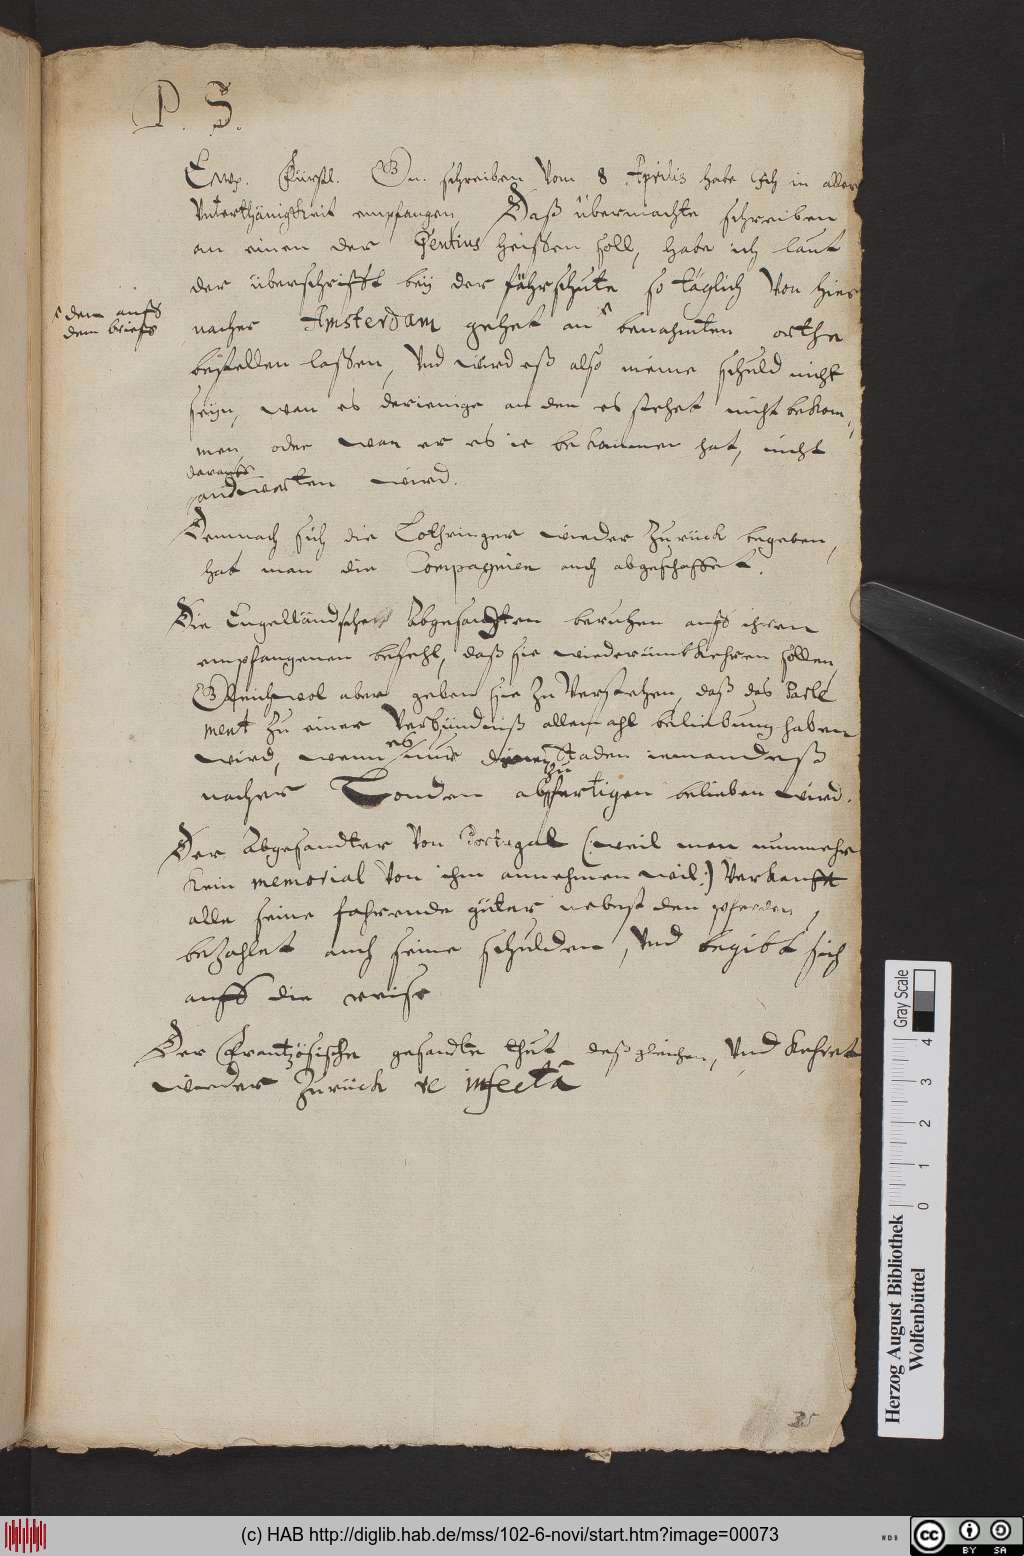 P. S.
Ewr. Fürstl. Gn. schreiben Vom 8 Aprilis habe Ich in aller
Vnterthänigkeit empfangen. Daß übermachte schreiben
an einen der Gentius heissen soll, habe ich laut
der überschrifft beÿ der fährschute so täglich Von hier
nacher Amsterdam gehet an ^ benahmten orthe
^ dem auffs
dem brieffs
bestellen lassen, Vnd wird eß also meine schuld nicht
seÿn, wan es derienige an den es stehet nicht bekom-
men, oder wan er es ie bekommen hat, nicht
darauff
andworten wird.
Demnach sich die Lothringer wieder Zurück begeben,
hat man die Compagnien auch abgeschaffet.
Die Engelländsche Abgesandten beruhen auff ihren
empfangenen befehl, daß sie wiederumb kehren sollen,
Gleichwol aber geben sie Zu Verstehen, daß das Parle
ment Zu einer Verbündniß allemahl beliebung haben
wird, wenn es nur denen Staden iemandeß
nacher Londen abzufertigen belieben wird.
Der Abgesandter Von Portugal (: weil man nunmehr
kein memorial Von ihm annehmen wil :) Verkaufft
alle seine fahrende güter nebenst den pferden,
bezahlet auch seine schulden, Vnd begibt sich
auff die reise
Der Frantzösische gesandte thut deßgleichen, Vnd kehret
wieder Zurück re infectâ
35
Herzog August Bibliothek
Wolfenbüttel
0 1 2 3 4
Gray Scale
(c) HAB http://diglib.hab.de/mss/102-6-novi/start.htm?image=00073
WDB
cc BY SA